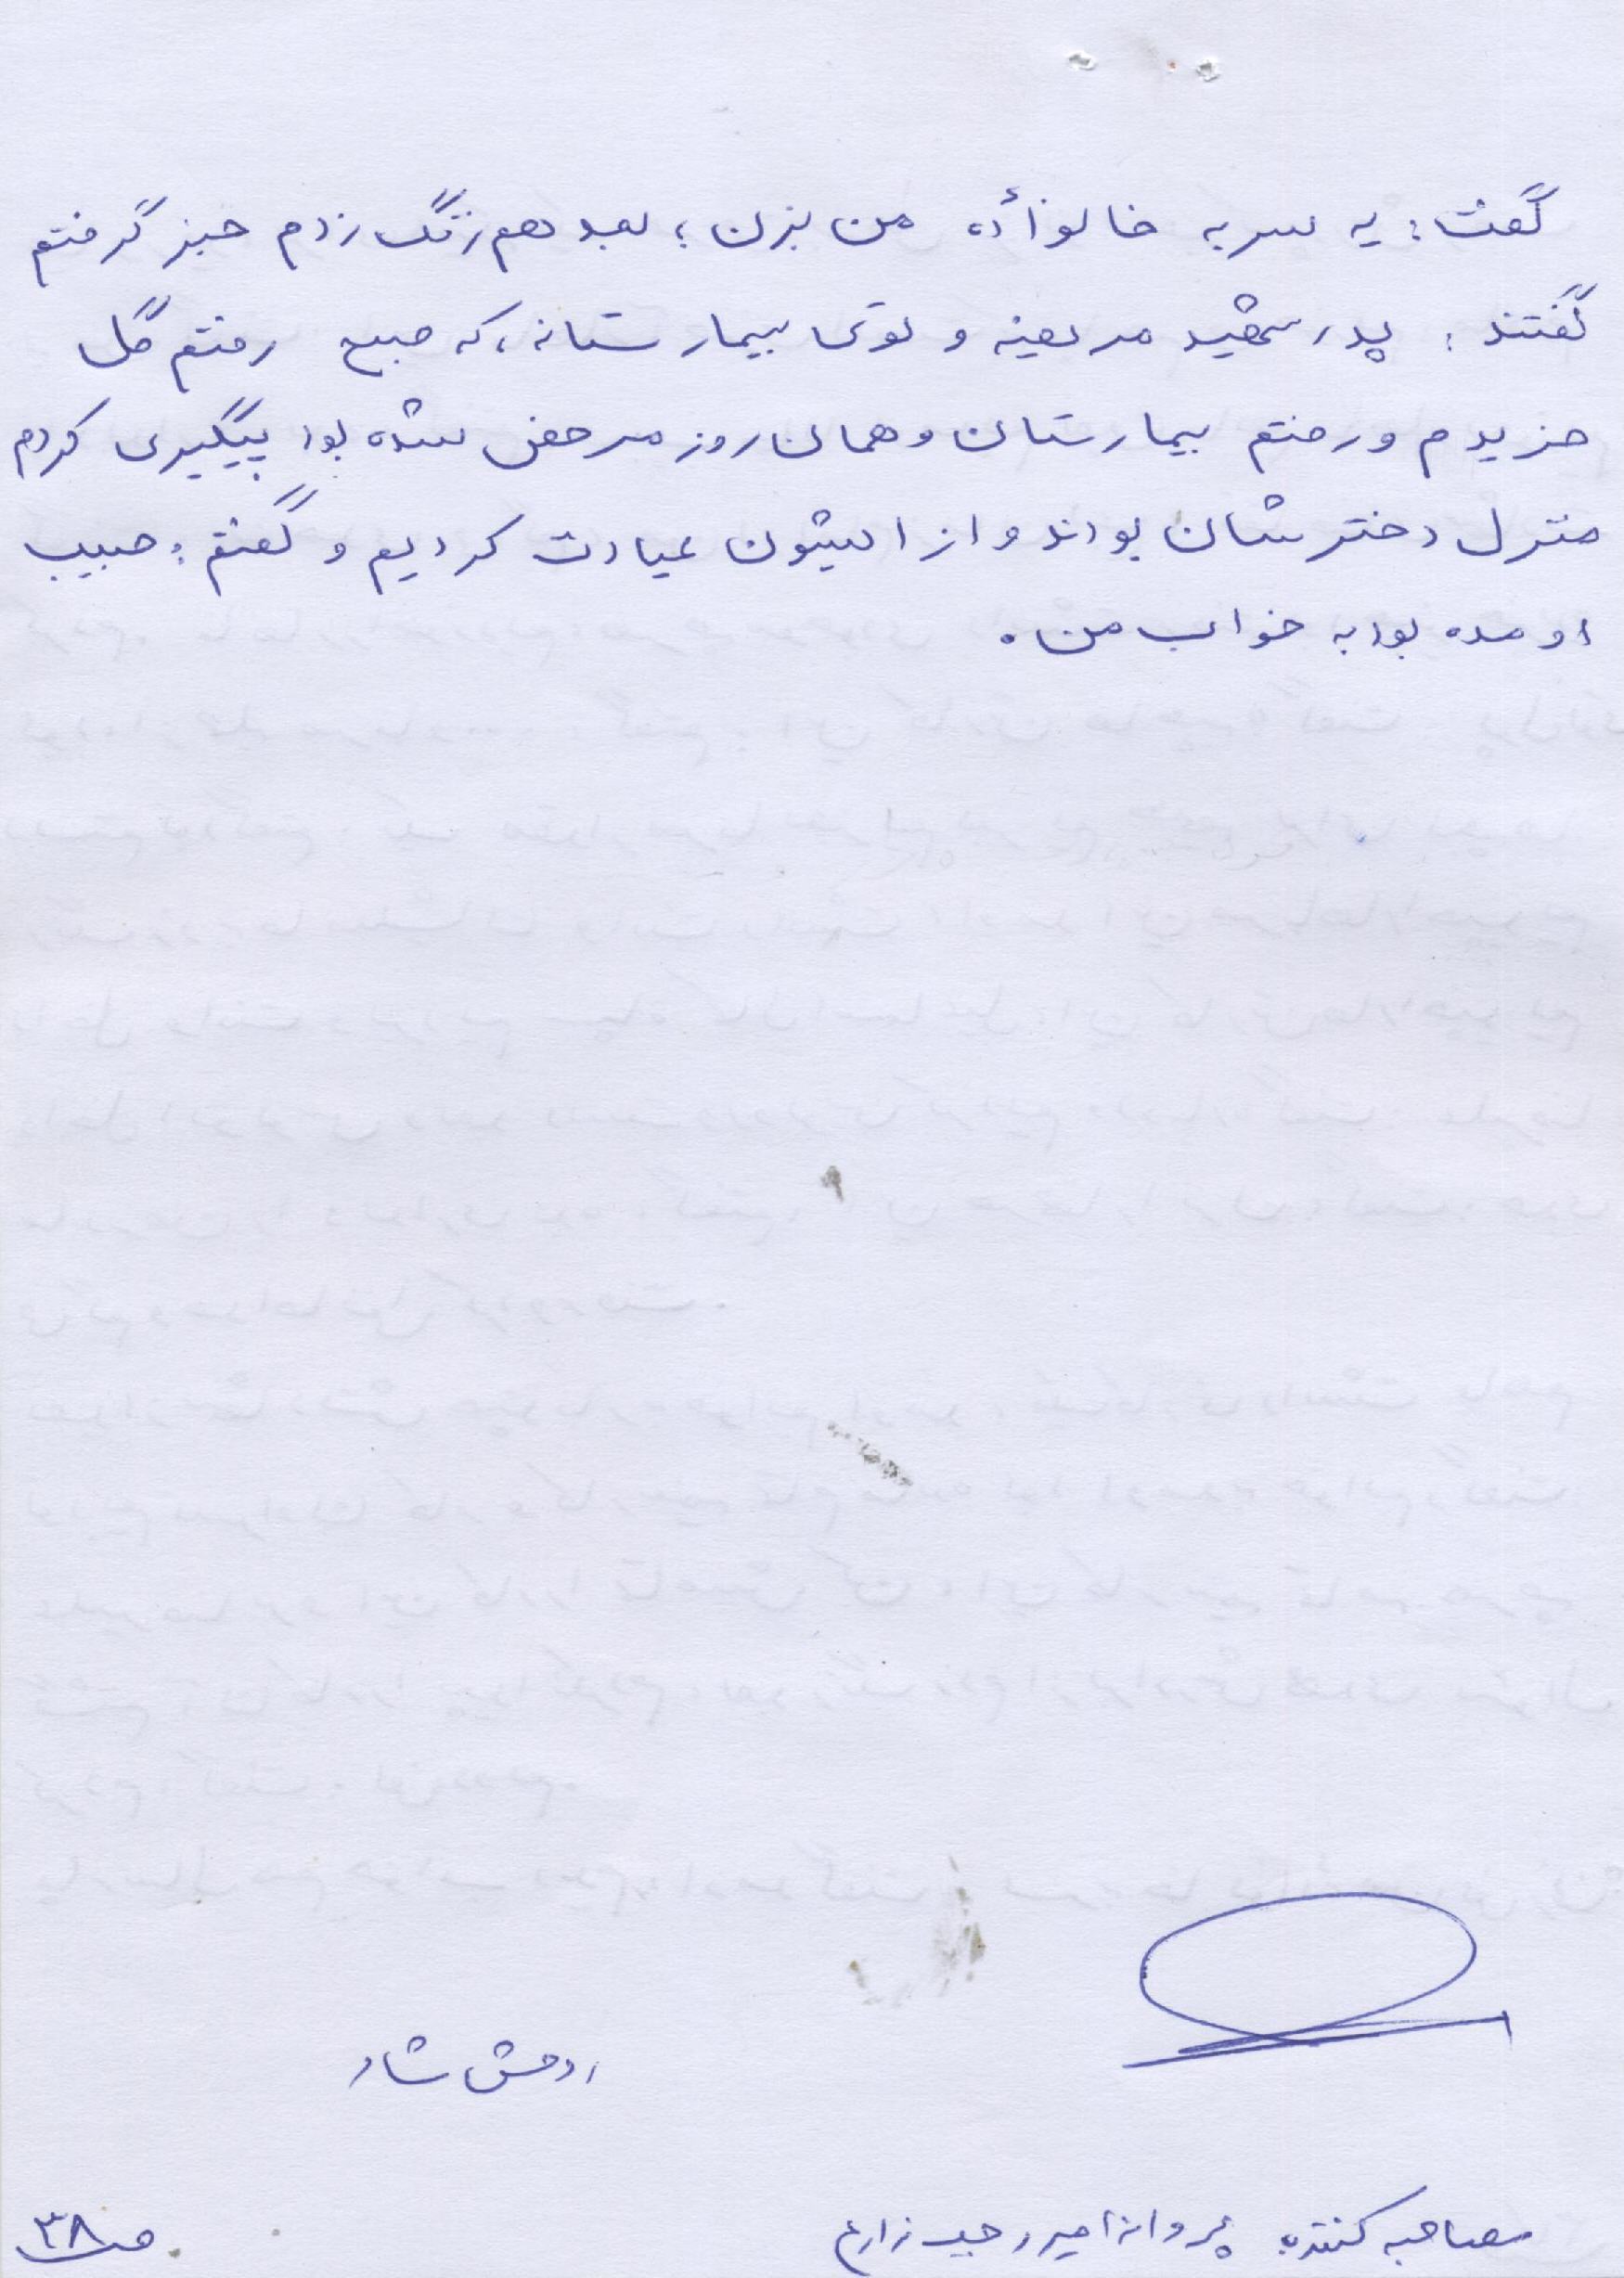 گفت: یه سر به خانوادهٔ من بزن؛ بعد هم زنگ زدم خبر گرفتم
گفتند: پدر شهید مریضه و توی بیمارستانه، که صبح رفتم گل
خریدم و رفتم بیمارستان و همان روز مرخص شده بود پیگیری کردم
منزل دخترشان بودند و از ایشون عیادت کردیم و گفتم: حبیب
اومده بود به خواب من.
روحش شاد
مصاحبه کننده: زارع
ص ۳۸